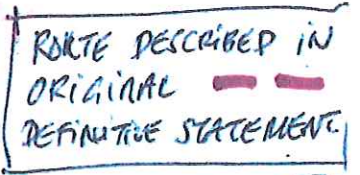 ROUTE DESCRIBED IN
ORIGINAL
DEFINITIVE STATEMENT